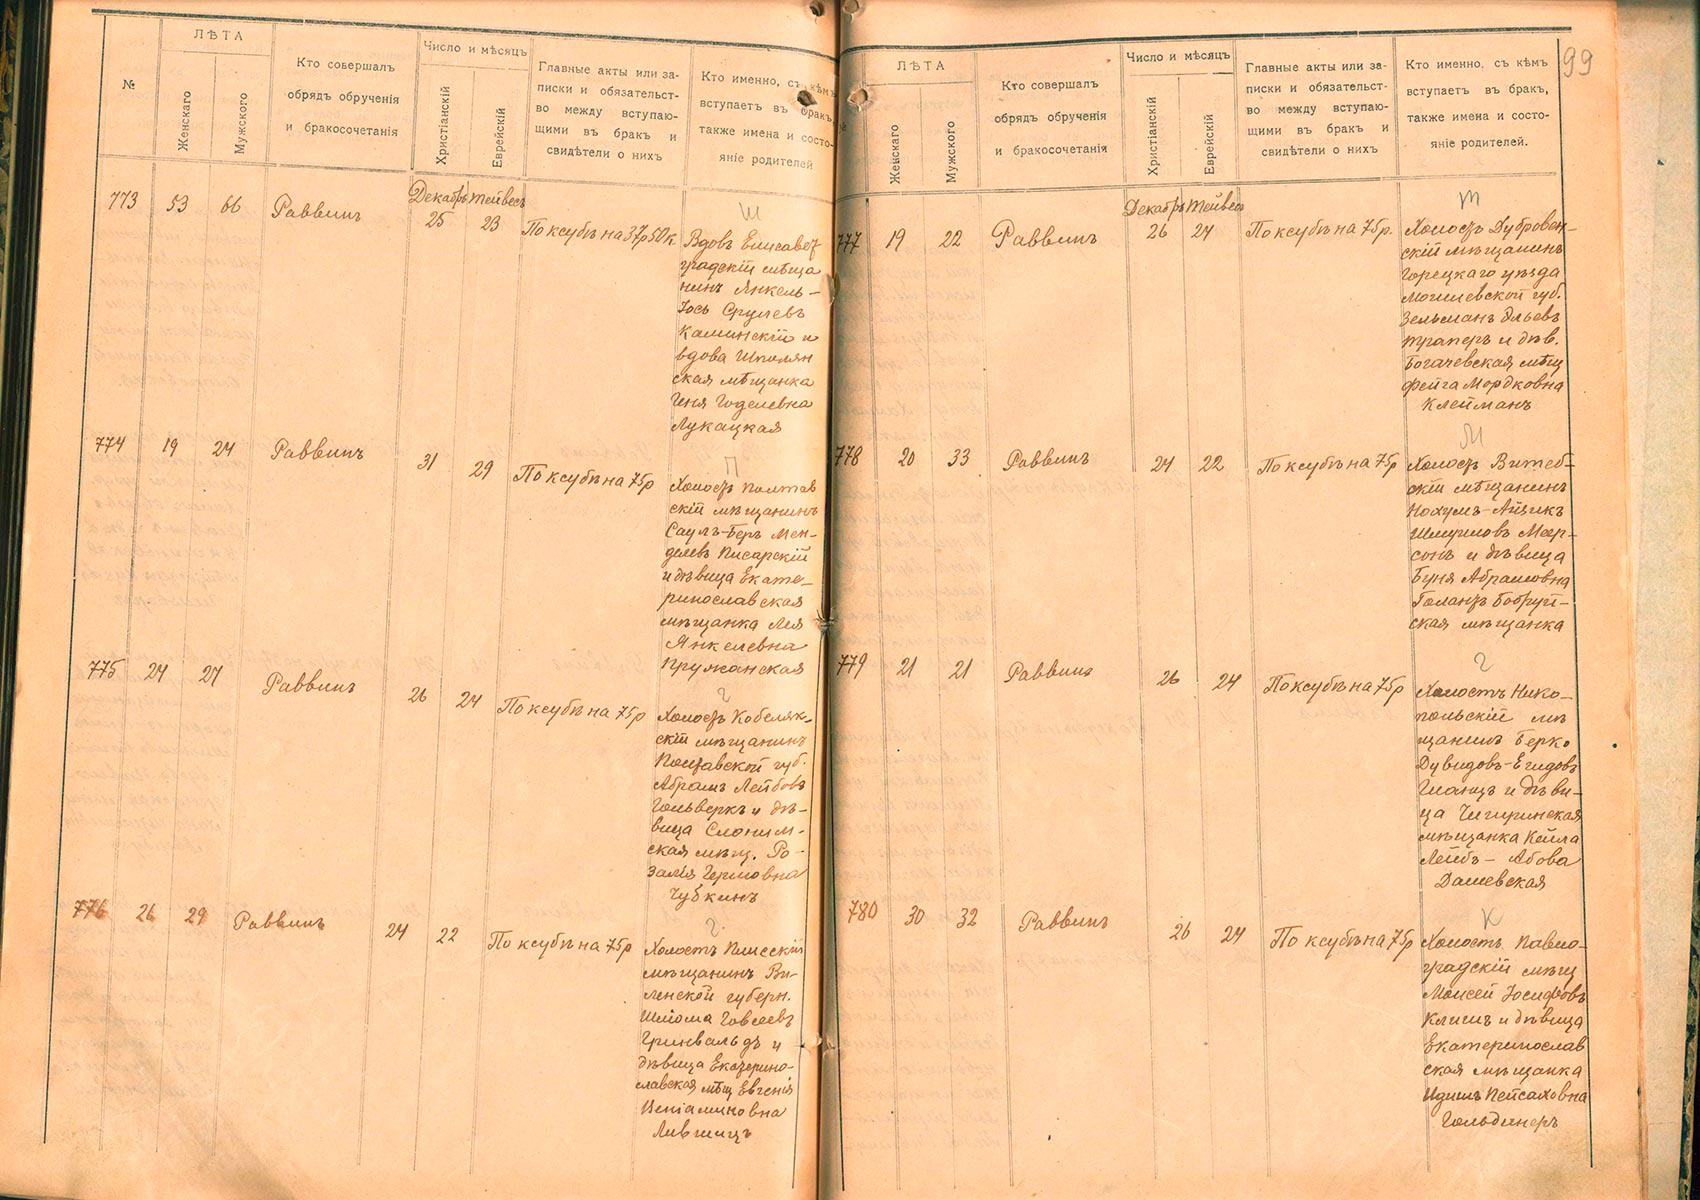 99
№
ЛѢТА
Женскаго
Мужского
Кто совершалъ
обрядъ обрученія
и бракосочетанія
Число и мѣсяцъ
Христіанскій
Еврейскій
Главные акты или за-
писки и обязательст-
во между вступаю-
щими въ бракъ и
свидѣтели о нихъ
Кто именно, съ кѣмъ
вступаетъ въ бракъ,
также имена и состо-
яніе родителей
773 53 66 Раввинъ
Декабрь Тейвесъ
25 23 По ксубѣ на 37р 50к.
Ш
Вдовъ Елисавет
градскій мѣща
нинъ Янкель-
Іось Срулевъ
Каминскій и
вдова Шполян
ская мѣщанка
Геня Годелевна
Лукацкая
774 19 24 Раввинъ 31 29 По ксубѣ на 75р
П
Холостъ Полтав
скій мѣщанинъ
Саулъ-Беръ Мен-
делевъ Писарскій
и дѣвица Екате-
ринославская
мѣщанка Лея
Янкелевна
Пружанская
775 24 27 Раввинъ 26 24 По ксубѣ на 75р
Г
Холостъ Кобеляк-
скій мѣщанинъ
Полтавской губ.
Абрамъ Лейбовъ
Гольверкъ и дѣ-
вица Слоним-
ская мѣщ. Ро-
залія Герцовна
Чубкинъ
776 26 29 Раввинъ 24 22 По ксубѣ на 75р
Г
Холостъ
мѣщанинъ Ви-
ленской губерн.
Шлома Говсеевъ
Гринвальдъ и
дѣвица Екатерино-
славская мѣщ Евгенія
Веніаминовна
Лившицъ
ЛѢТА
Женскаго
Мужского
Кто совершалъ
обрядъ обрученія
и бракосочетанія
Число и мѣсяцъ
Христіанскій
Еврейскій
Главные акты или за-
писки и обязательст-
во между вступаю-
щими въ бракъ и
свидѣтели о нихъ
Кто именно, съ кѣмъ
вступаетъ въ бракъ,
также имена и состо-
яніе родителей.
777 19 22 Раввинъ
Декабрь Тейвесъ
26 24 По ксубѣ на 75р.
Т
Холостъ Дубровен-
скій мѣщанинъ
Горецкаго уѣзда
Могилевской губ.
Зельманъ Эльевъ
Траперъ и дѣв.
Богачевская мѣщ
Фейга Мордковна
Клейманъ
778 20 33 Раввинъ 24 22 По ксубѣ на 75р
М
Холостъ Витеб-
скій мѣщанинъ
Нохумъ-Айзикъ
Шмуиловъ Меер-
сонъ и дѣвица
Буня Абрамовна
Голантъ Бобруй-
ская мѣщанка
779 21 21 Раввинъ 26 24 По ксубѣ на 75р
Г
Холостъ Нико-
польскій мѣ
щанинъ Берко
Дувидовъ-Егидовъ
Гланцъ и дѣви-
ца Чигиринская
мѣщанка Кейла
Лейбъ-Абова
Дашевская
780 30 32 Раввинъ 26 24 По ксубѣ на 75р
К
Холостъ Павло-
градскій мѣщ
Моисей Іосифовъ
Клигъ и дѣвица
Екатеринослав
ская мѣщанка
Идишъ Пейсаховна
Гольдинеръ